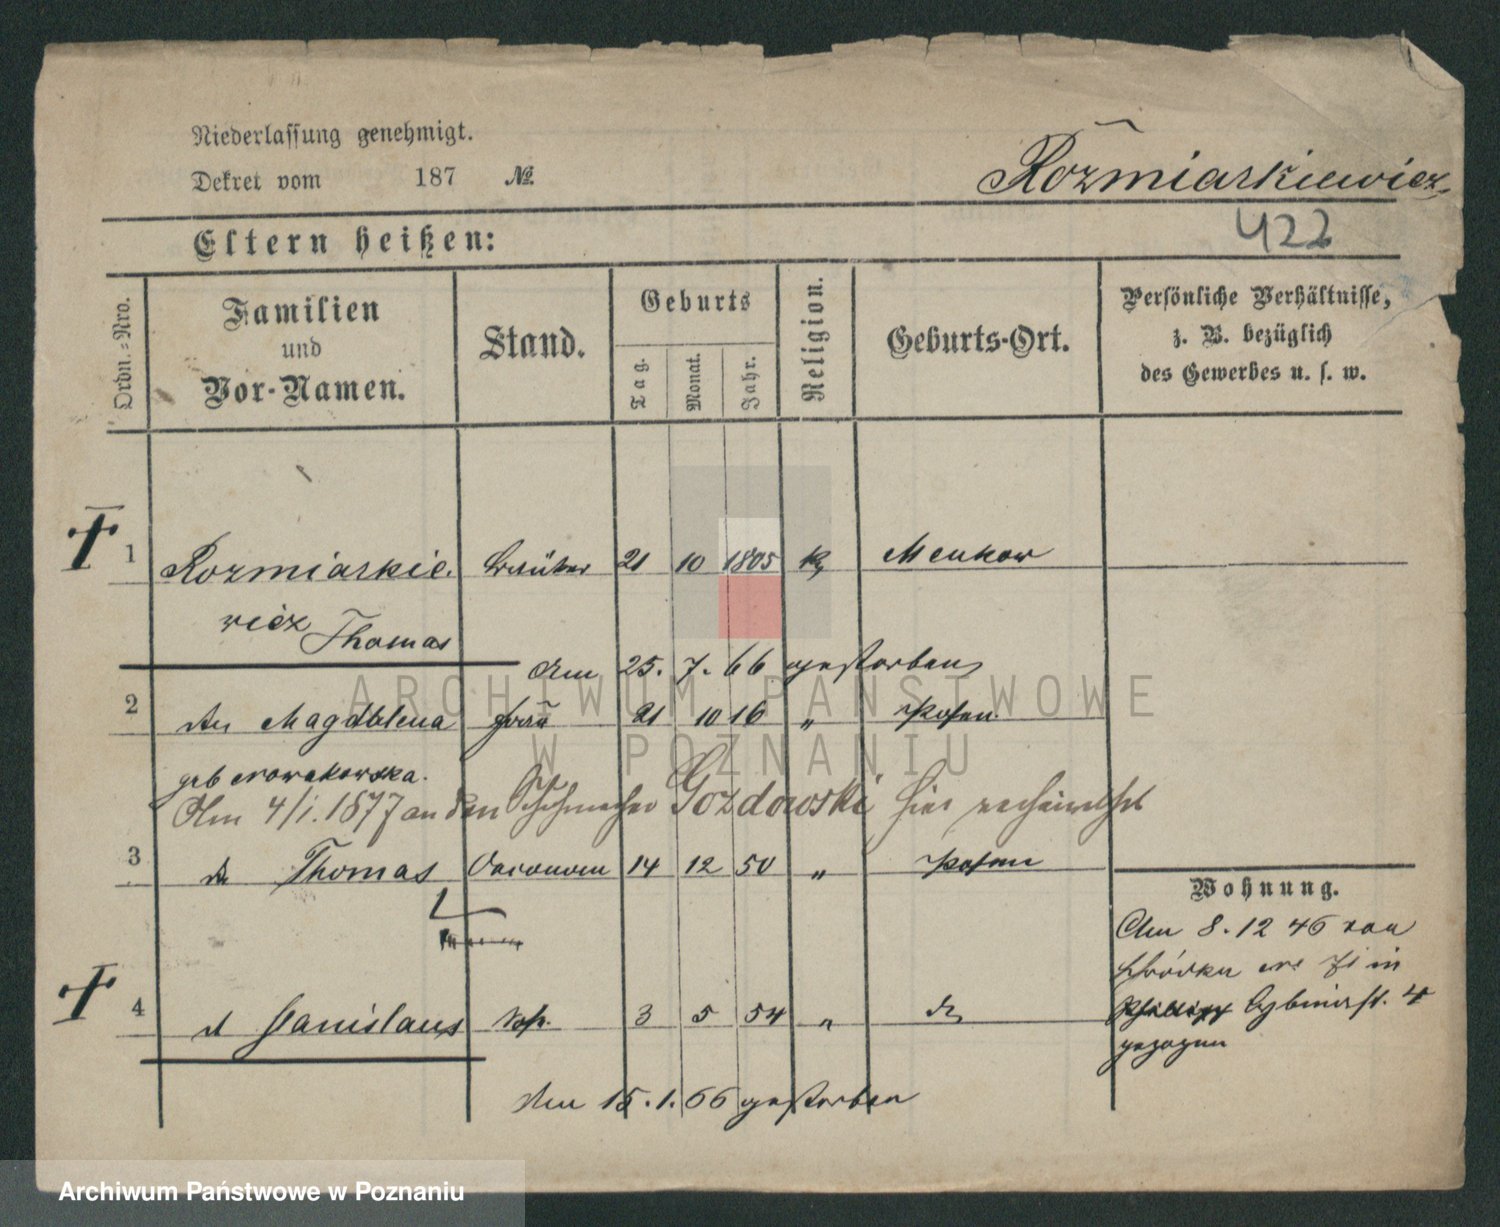 Niederlassung genehmigt.
Dekret vom 187 №
Rozmiarkiewicz
422
Eltern heißen:
Ordn.-Nro.
Familien
und
Vor-Namen.
Stand.
Geburts
Tag.
Monat.
Jahr.
Religion.
Geburts-Ort.
Persönliche Verhältnisse,
z. B. bezüglich
des Gewerbes u. s. w.
1 Rozmiarkie 21 10 1805 K
wicz Thomas
Am 25. 7. 66 gestorben
2 Magdalena Frau 21 10 16 " Posen
geb Nowakowska.
Am 4/1. 1877 an den Schuhmacher Gozdowski hier verheirathet
3 Thomas 14 12 50 " Posen
4 Stanislaus 3 5 54 "
den 15. 1. 66 gestorben
Wohnung.
Am 8. 12 76 von
in
4
gezogen
ARCHIWUM PAŃSTWOWE
W POZNANIU
Archiwum Państwowe w Poznaniu